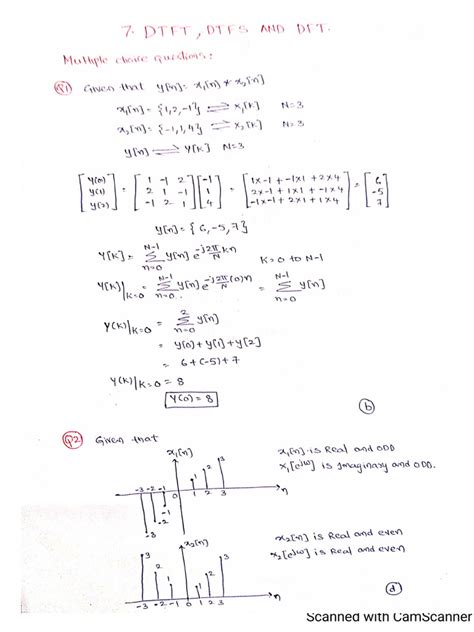 7. DTFT, DTFS AND DFT.
Multiple choice questions:
Q1) Given that y[n] = x₁[n] * x₂[n]
x₁[n] = {1, 2, -1} ⇌ x₁[K] N=3
x₂[n] = {-1, 1, 4} ⇌ x₂[K] N=3
y[n] ⇌ Y[K] N=3
[y(0) y(1) y(2)] = [1 -1 2; 2 1 -1; -1 2 1] [-1 1 4] = [1x-1 + -1x1 + 2x4; 2x-1 + 1x1 + -1x4; -1x-1 + 2x1 + 1x4] = [6 -5 7]
y[n] = {6, -5, 7}
Y[K] = Σ_{n=0}^{N-1} y[n] e^{-j2π/N Kn} K = 0 to N-1
Y[K]|K=0 = Σ_{n=0}^{N-1} y[n] e^{-j2π/N (0)n} = Σ_{n=0}^{N-1} y[n]
Y(K)|K=0 = Σ_{n=0}^{2} y[n]
= y(0) + y[1] + y[2]
= 6 + (-5) + 7
Y(K)|K=0 = 8
Y(0) = 8
(b)
Q2) Given that
x₁[n]
3
2
1
-3 -2 -1 0 1 2 3 n
-1
-2
-3
x₁[n] is Real and ODD
x₁[e^{jω}] is Imaginary and ODD.
x₂[n]
3
2
1
1
2
3
-3 -2 -1 0 1 2 3 n
x₂[n] is Real and even
x₂[e^{jω}] is Real and even
(d)
Scanned with CamScanner